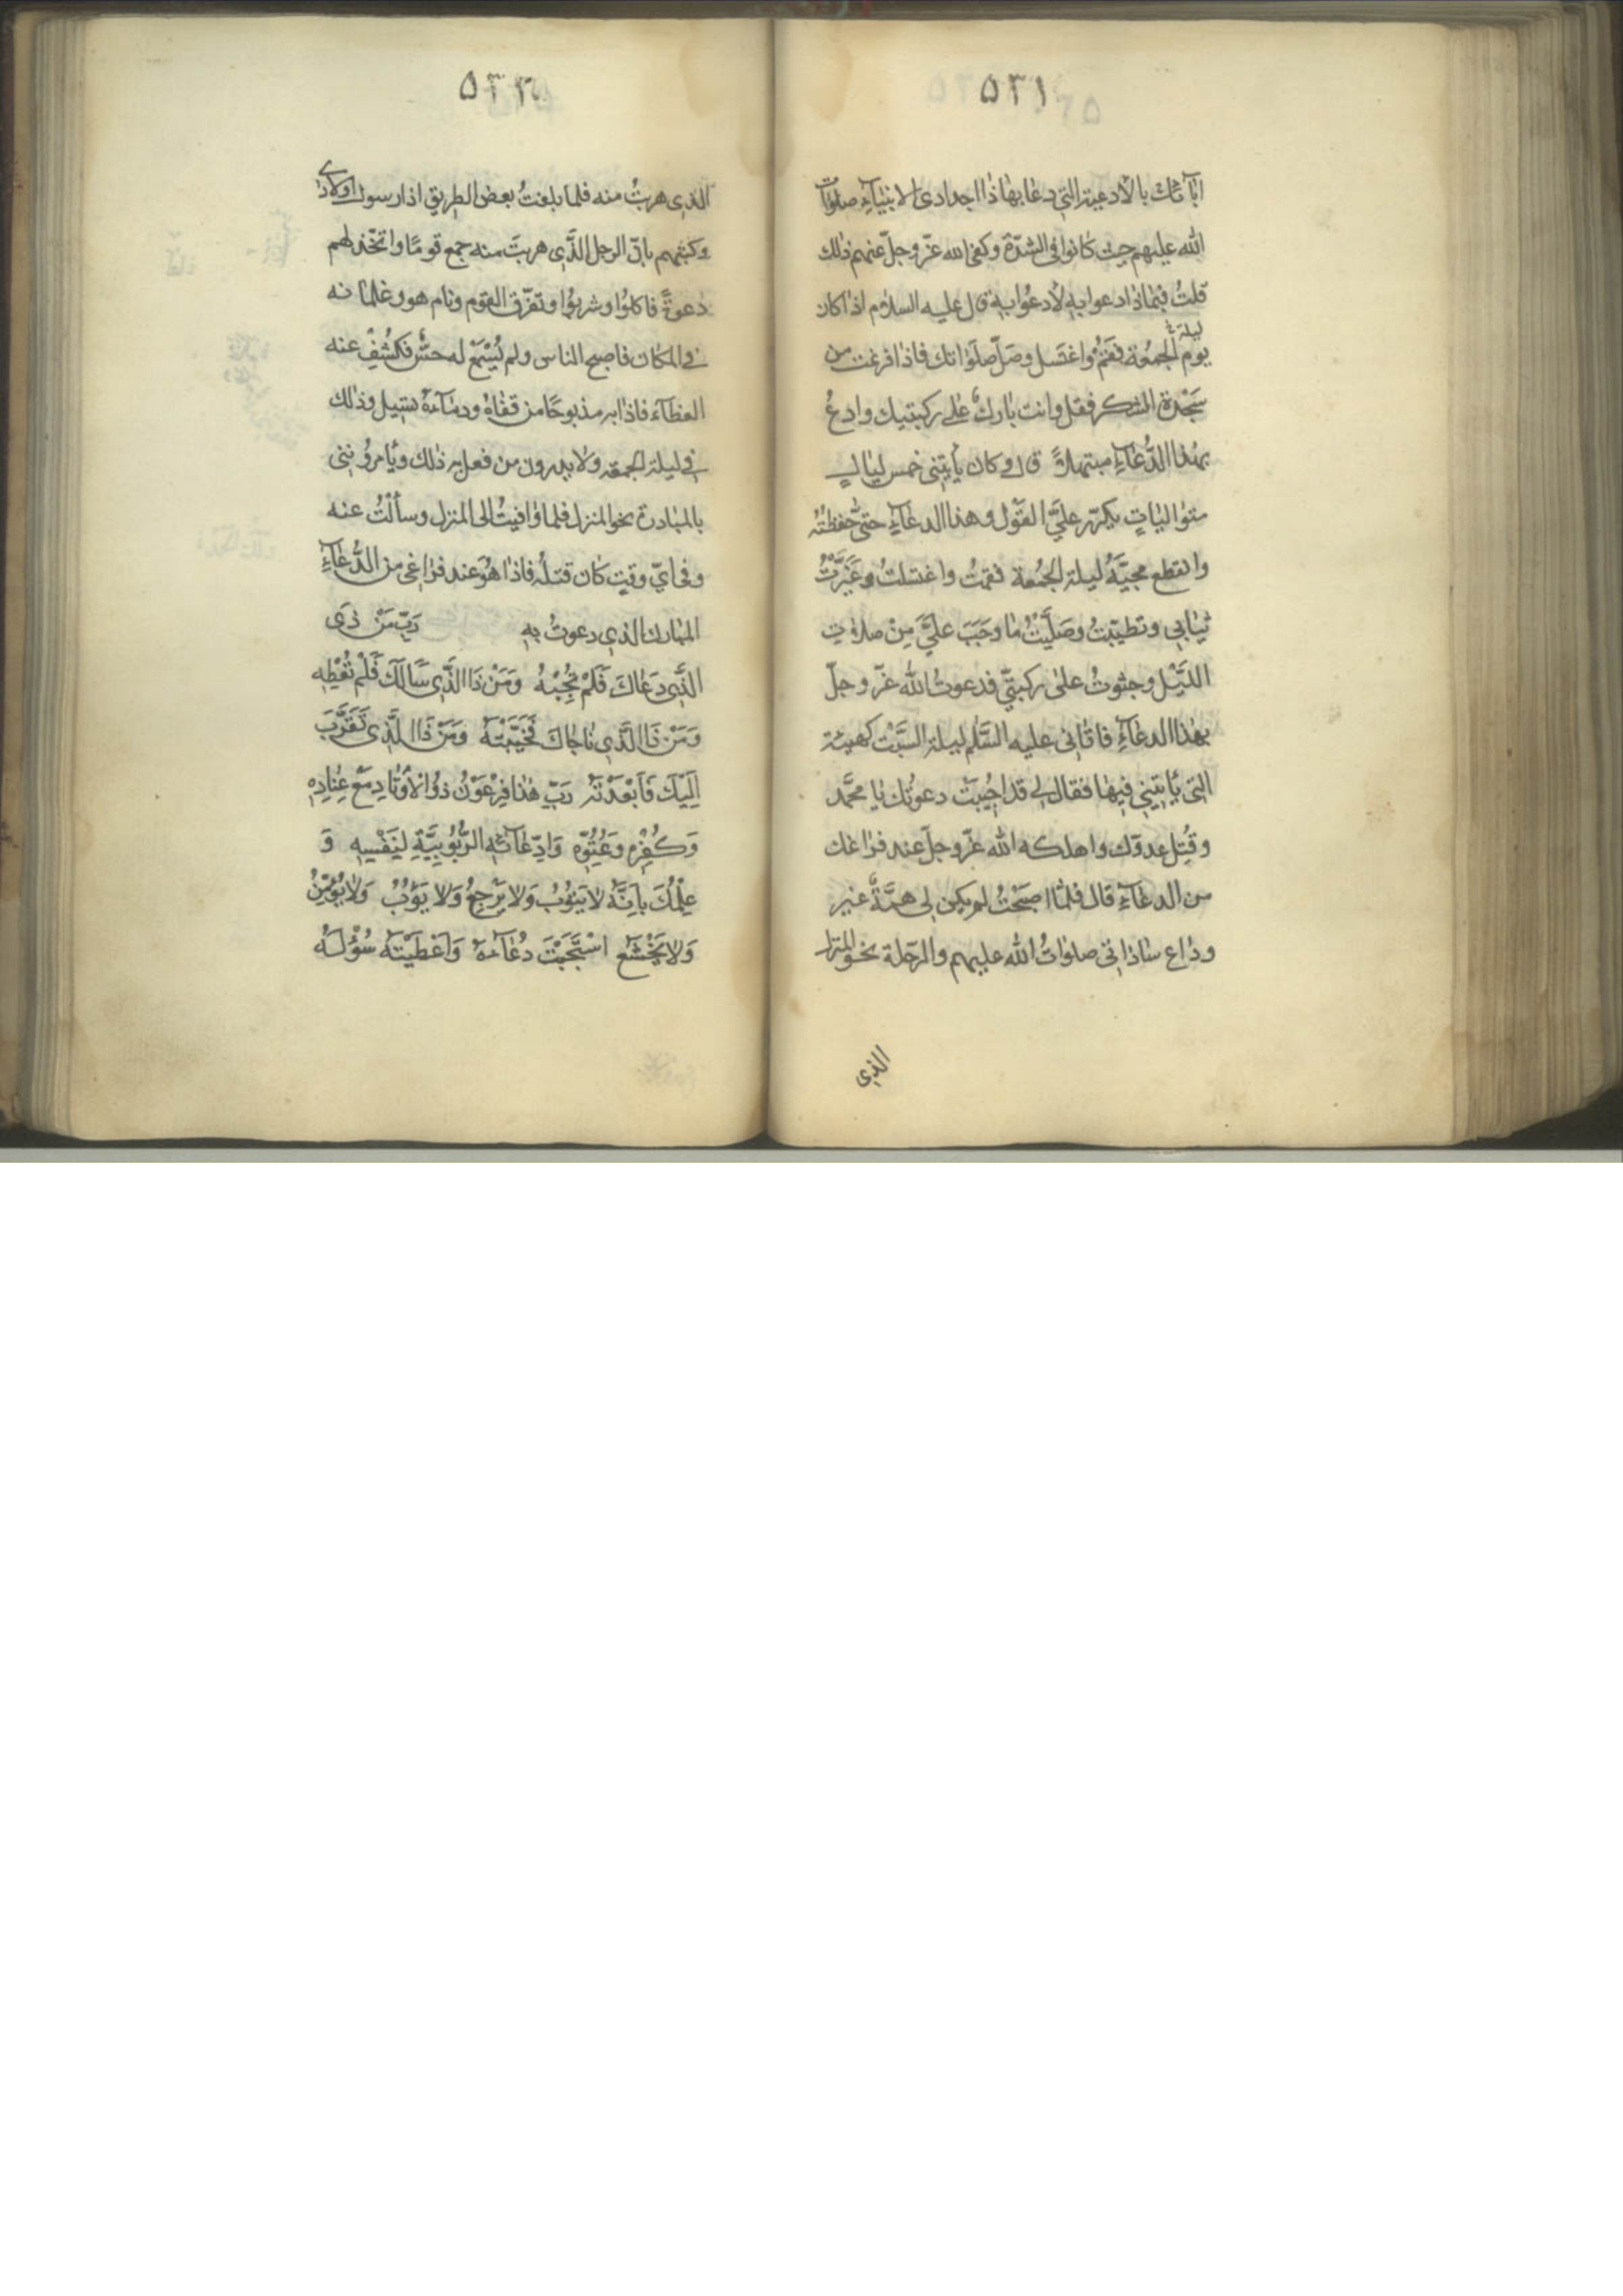 ۵۳۱
اٰبآئك بالأدعية التي دعا بها ذا اجدادى الانبيآءِ صلوات
الله عليهم حيث كانوا فى الشدّة وكفى الله عزّ وجلّ عنهم ذلك
قلتُ فبماذا دعوا به لأدعُوا به قال عليه السلام اذا كان
ليلة
يوم الجمعة فقُم واغتسل وصَلّ صلَوٰاتك فاذا فرغت من
سَجْدة الشكر فقل وانت بارك على ركبتيك وادعُ
بهٰذا الدُّعاءِ مبتهلاً قال وكان يأتيني خمس ليالٍ
متواليٰاتٍ يكرّر علَيَّ القَوْل وهذا الدعآءِ حتىٰ حفظتُهُ
وانقطع مجيَّهُ ليلة الجُمُعة فقمتُ واغتسلتُ وغَيَّرْتُ
ثيابي وتطيّبتُ وصَلَّيْتُ ما وجَبَ علَيَّ مِنْ صلاةِ
اللَّيْل وجثوتُ علىٰ ركبتيّ فدعوتُ الله عزّ وجلّ
بهٰذا الدعآءِ فاتٰانى عليه السَّلم ليلة السَّبْت كهيئة
التى يأتيني فيها فقال لي قد اجُيبَتْ دعوتُك يٰا محمَّد
وقُتِل عدوّك واهلكه الله عزّ وجلّ عند فرٰاغك
من الدعآءِ قال فلمّا اصبَحْتُ لم يكن لى همَّةٌ غير
ودٰاع ساداتى صلوٰاتُ الله عليهم والرّحلة نحو المنزل
الذي
۵۳۲
الذى هربتُ منه فلما بلغتُ بعض الطريق اذا رسول اولادى
وكتبهم بانّ الرجل الَّذى هربتَ منه جمع قومًا واتخّذ لهم
دعوةً فاكلوُا وشربوُا وتفرّق القوم ونام هو وغلمانه
فى المكان فاصبح الناس ولم يُسْمَعْ له حسٌّ فكُشِفْ عنه
الغطآءَ فاذا به مذبوحًا من قفاهُ ودمآءهُ تسيل وذلك
في ليلة الجمعة ولا يدرون من فعل به ذلك ويأمروُننى
بالمبادرة نحو المنزل فلما وٰافيتُ الى المنزل وسألْتُ عنه
وفى ايّ وقتٍ كان قتلُه فاذا هُوَ عند فرٰاغى من الدُّعآءِ
المبارك الذي دعوتُ بهِ رَبّ مَنْ ذَى
الَّذى دَعٰاكَ فَلَمْ تُجِبْهُ وَمَنْ ذَا الَّذِى سَاَلَكَ فَلَمْ تُعْطِهِ
وَمَنْ ذَا الَّذي نٰاجٰاكَ فَخَيَّبْتَهُ وَمَنْ ذَا الَّذى تَقَرَّبَ
اِلَيْكَ فَاَبْعَدْتَهُ رَبِّ هٰذا فِرْعَوْنُ ذوُا الأَوْتٰادِ مَعْ عِنٰادِهِ
وَكُفْرِهِ وعُتُوِّهِ وَادِّعٰآئهِ الرُّبُوبِيَّةِ لِنَفْسِهِ وَ
عِلْمُكَ بِاَنَّهُ لايَتوُبُ وَلا يَرْجِعُ وَلا يَؤُبُ وَلا يُؤْمِنُ
وَلا يَخْشَع اسْتَجَبْتَ دُعٰآءَهُ وَاَعْطَيْتَهُ سُؤْلَهُ